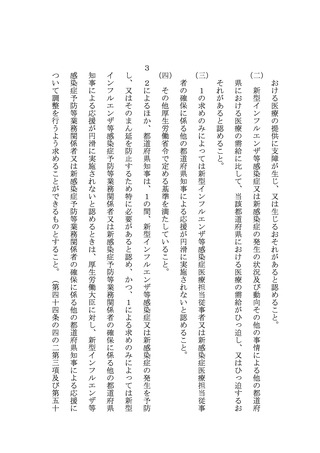 おける医療の提供に支障が生じ、又は生じるおそれがあると認めること。
㈡　新型インフルエンザ等感染症又は新感染症の発生の状況及び動向その他の事情による他の都道府
県における医療の需給に比して、当該都道府県における医療の需給がひっ迫し、又はひっ迫するお
それがあると認めること。
㈢　１の求めのみによっては新型インフルエンザ等感染症医療担当従事者又は新感染症医療担当従事
者の確保に係る他の都道府県知事による応援が円滑に実施されないと認めること。
㈣　その他厚生労働省令で定める基準を満たしていること。
３　２によるほか、都道府県知事は、１の間、新型インフルエンザ等感染症又は新感染症の発生を予防
し、又はそのまん延を防止するため特に必要があると認め、かつ、１による求めのみによっては新型
インフルエンザ等感染症予防等業務関係者又は新感染症予防等業務関係者の確保に係る他の都道府県
知事による応援が円滑に実施されないと認めるときは、厚生労働大臣に対し、新型インフルエンザ等
感染症予防等業務関係者又は新感染症予防等業務関係者の確保に係る他の都道府県知事による応援に
ついて調整を行うよう求めることができるものとすること。（第四十四条の四の二第三項及び第五十